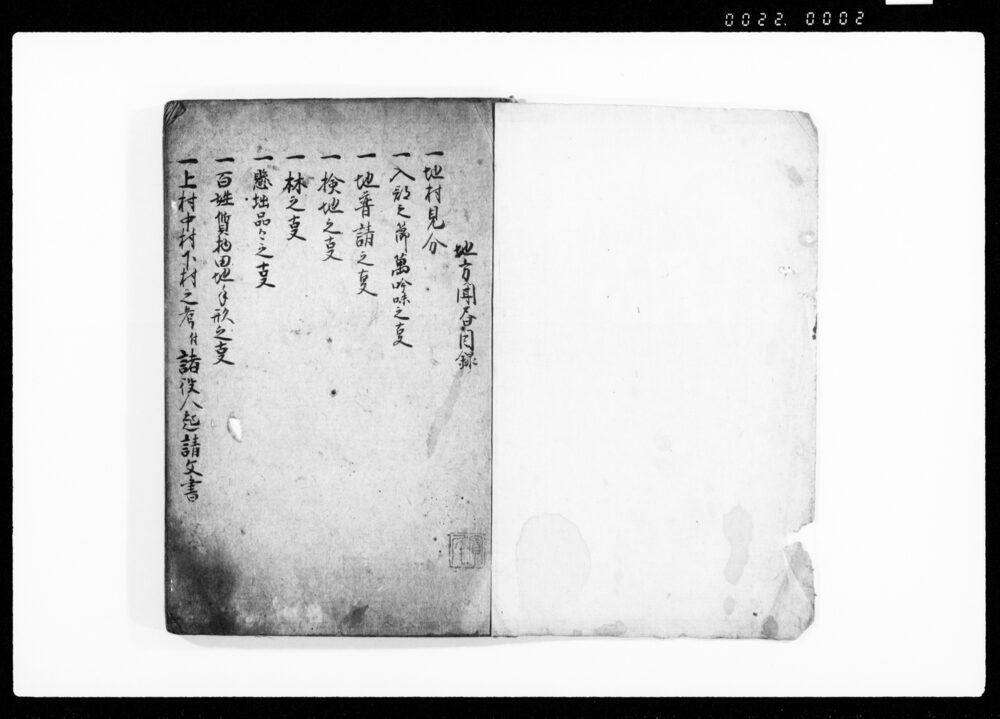 0022. 0002
地方聞書目録
一地村見分
一入部之節萬吟味之事
一地普請之事
一検地之事
一林之事
一懸拙品々之事
一百姓質物田地手形之事
一上村中村下村之考付諸役人起請文書